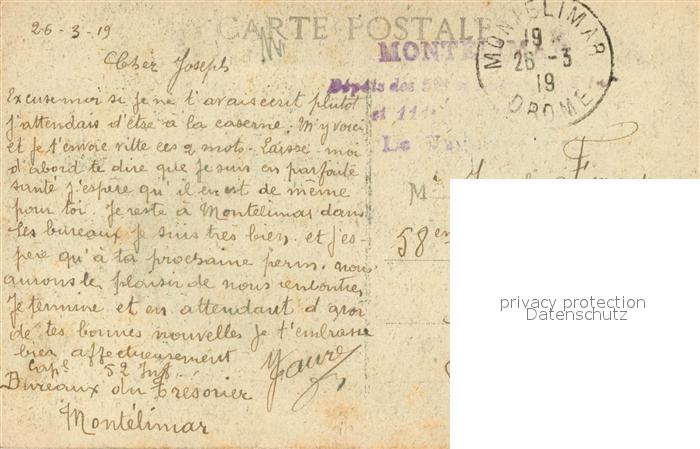 CARTE POSTALE
26-3-19
Cher Joseph
Excuse moi si je ne t'avais ecrit plutot
j'attendais d'être à la caserne. M'y voici
et je t'envoie vitte ces 2 mots. Laisse-moi
d'abord te dire que je suis en parfaite
santé j'espere qu'il en est de même
pour toi. Je reste à Montélimar dans
les bureaux je suis très bien, et j'es-
père qu'à ta prochaine perm. nous
aurons le plaisir de nous rentontrer
Je termine et en attendant d
de tes bonnes nouvelles je t'embrasse
bien affectueusement
Faure
Cap. 52 Inf.
Bureaux du Trésorier
Montélimar
MONTELIMAR
Dépôts des
et 111
Le
MONTELIMAR
19
26-3
19
DROME
M
58em
privacy protection
Datenschutz